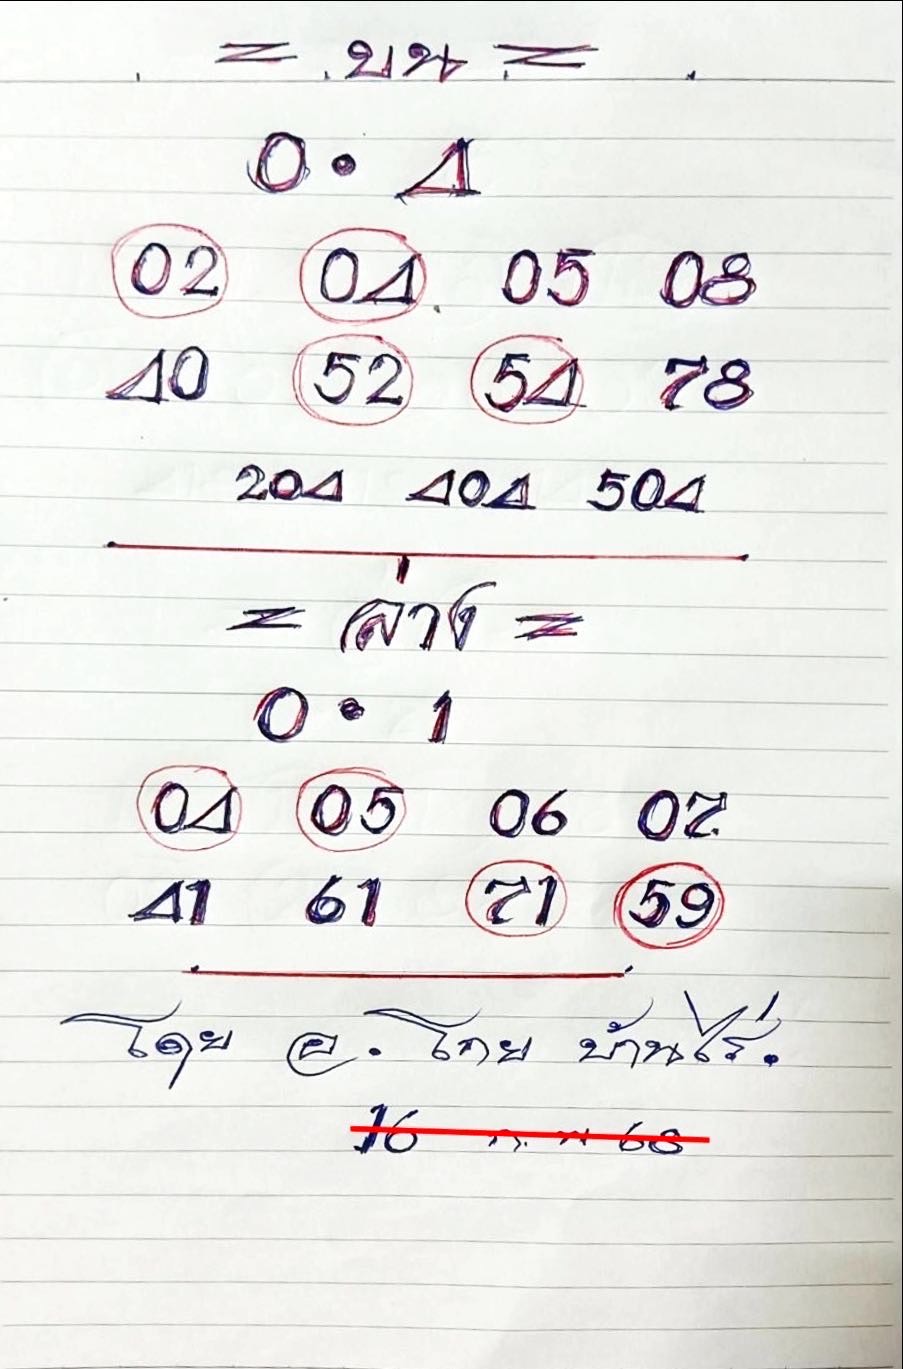 = บน =
0 • 4
02 04 05 08
40 52 54 78
204 404 504
= ล่าง =
0 • 1
04 05 06 07
41 61 71 59
โดย อ. โทย บ้านไร่.
16 ก. พ 68